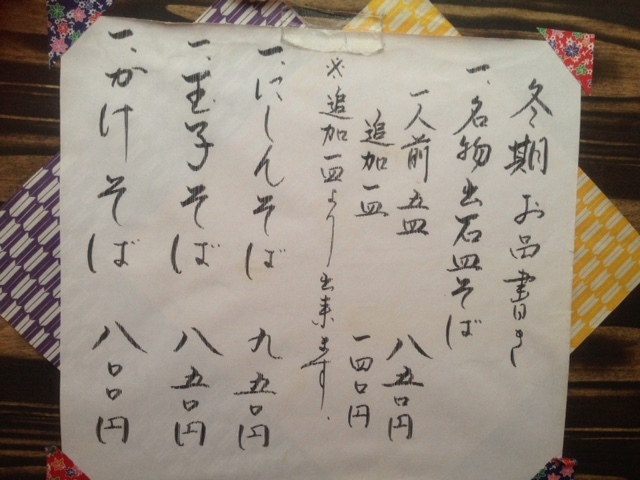 冬期 お品書き
一、名物出石皿そば
一人前 五皿 八五〇円
追加 一皿 一四〇円
※追加一皿より出来ます。
一、にしんそば 九五〇円
一、玉子そば 八五〇円
一、かけそば 八〇〇円